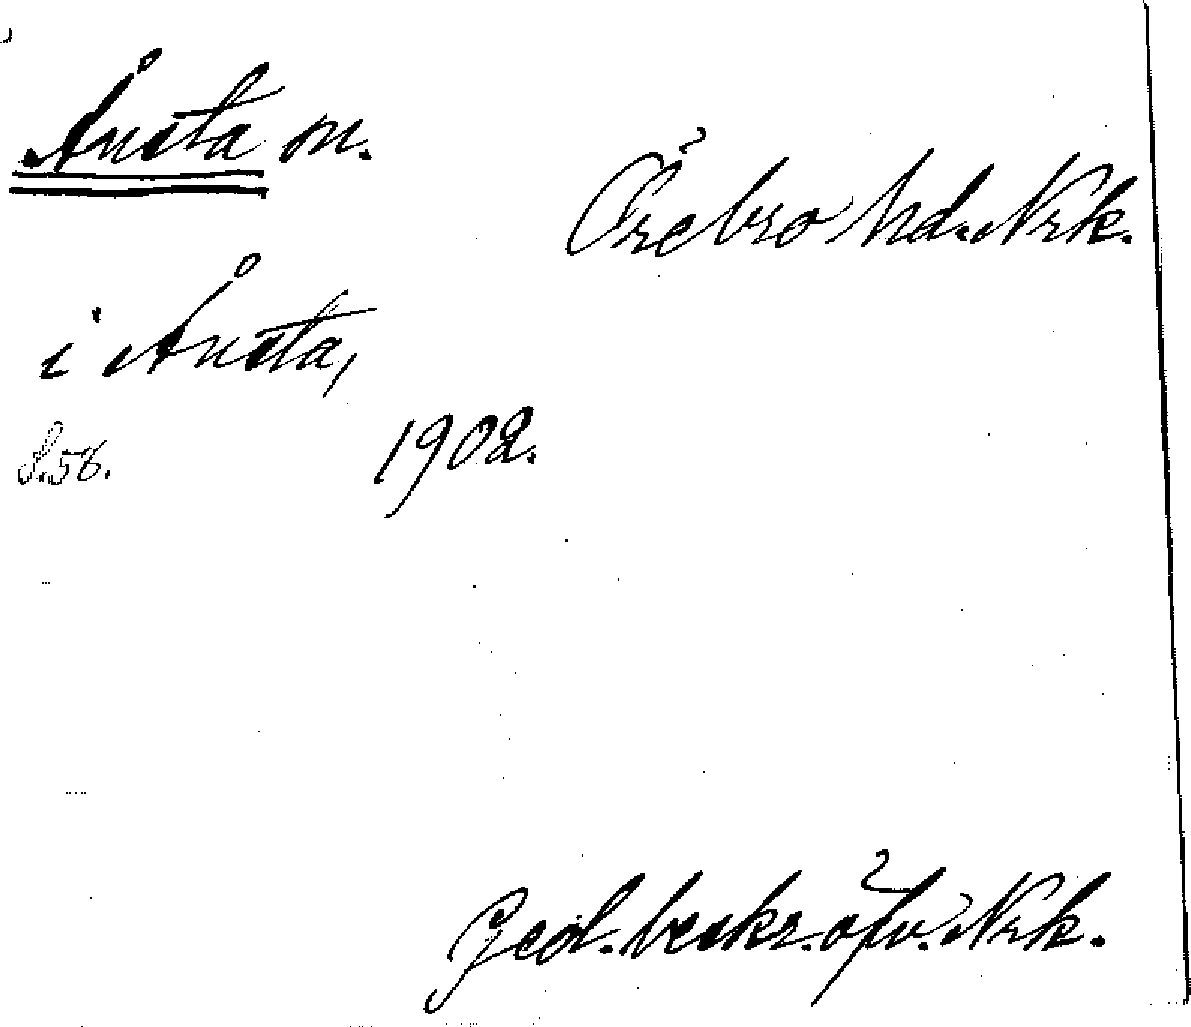 Ånsta m.
Örebro hd. Nrk.
i Ånsta,
S.58. 1902.
Geol. beskr. öfv. Nrk.